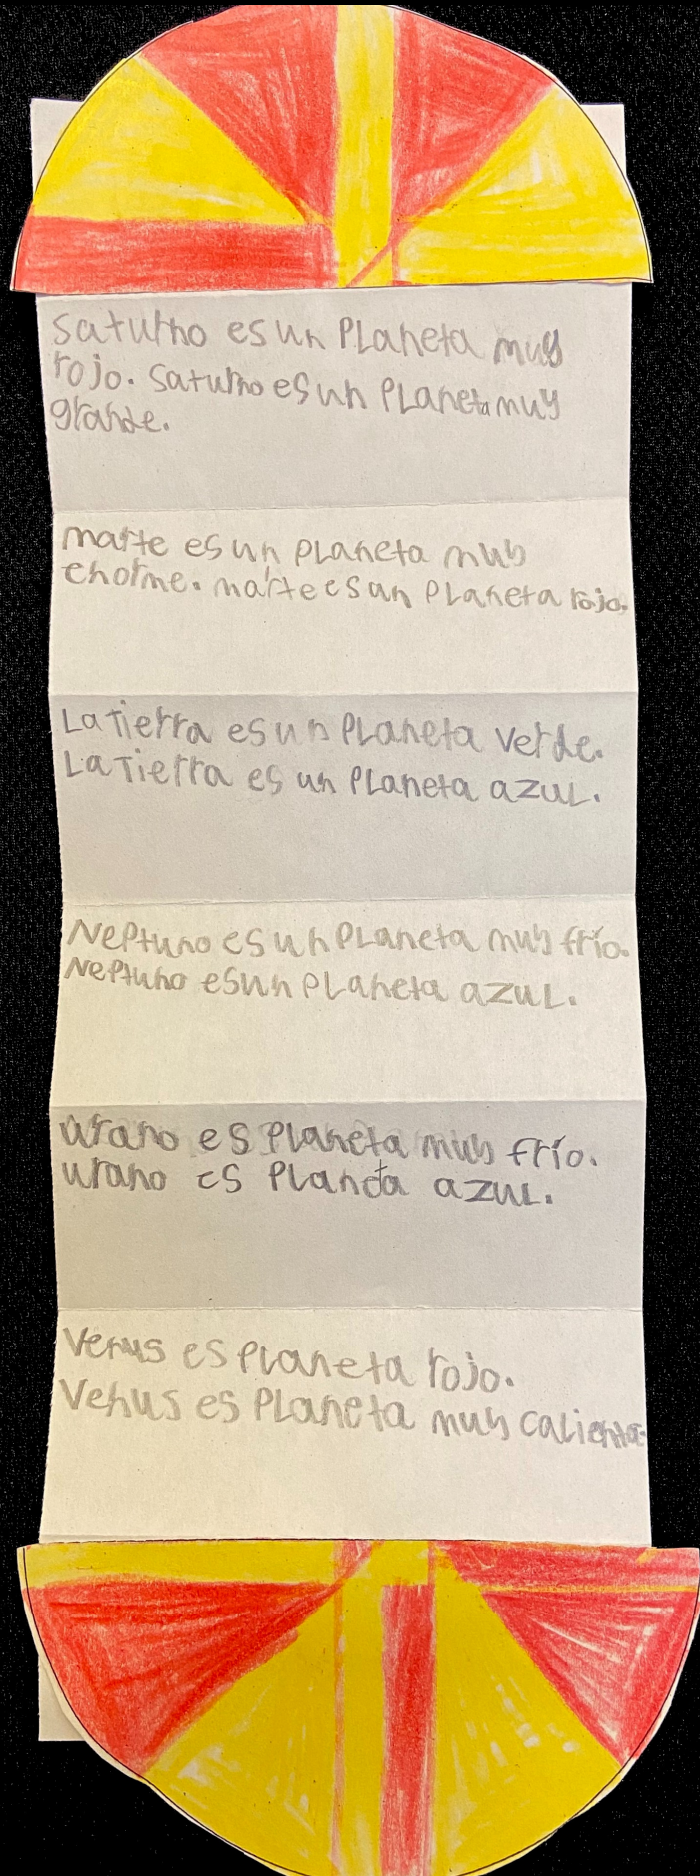 Saturno es un PLaneta muy
rojo. Saturno es un PLaneta muy
grande.
marte es un PLaneta muy
enorme. marte es un PLaneta rojo.
La Tierra es un PLaneta verde.
La Tierra es un PLaneta azuL.
Neptuno es un PLaneta muy frío.
Neptuno es un PLaneta azuL.
urano es PLaneta muy frío.
urano es PLaneta azuL.
Venus es PLaneta rojo.
Venus es PLaneta muy caliente.